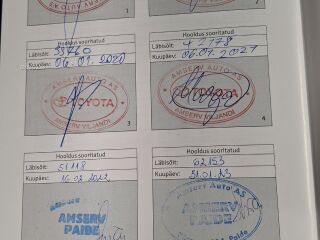 1
2
Hooldus sooritatud
Läbisõit: 35760
Kuupäev: 06.01.2020
AMSERV AUTO AS
TOYOTA
AMSERV VILJANDI
3
Hooldus sooritatud
Läbisõit: 42178
Kuupäev: 06.01.2021
AMSERV AUTO AS
TOYOTA
AMSERV VILJANDI
4
Hooldus sooritatud
Läbisõit: 51118
Kuupäev: 16.02.2022
AMSERV
PAIDE
Hooldus sooritatud
Läbisõit: 62153
Kuupäev: 31.01.23
AMSERV AUTO AS
AMSERV
PAIDE
Paide